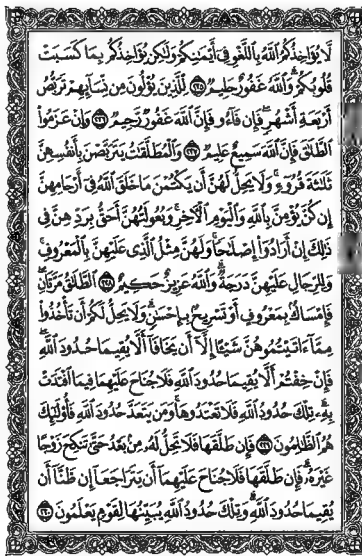 لَّا يُؤَاخِذُكُمُ ٱللَّهُ بِٱللَّغْوِ فِىٓ أَيْمَٰنِكُمْ وَلَٰكِن يُؤَاخِذُكُم بِمَا كَسَبَتْ
قُلُوبُكُمْ ۗ وَٱللَّهُ غَفُورٌ حَلِيمٌ ﴿٢٢٥﴾ لِّلَّذِينَ يُؤْلُونَ مِن نِّسَآئِهِمْ تَرَبُّصُ
أَرْبَعَةِ أَشْهُرٍ ۖ فَإِن فَآءُو فَإِنَّ ٱللَّهَ غَفُورٌ رَّحِيمٌ ﴿٢٢٦﴾ وَإِنْ عَزَمُوا۟
ٱلطَّلَٰقَ فَإِنَّ ٱللَّهَ سَمِيعٌ عَلِيمٌ ﴿٢٢٧﴾ وَٱلْمُطَلَّقَٰتُ يَتَرَبَّصْنَ بِأَنفُسِهِنَّ
ثَلَٰثَةَ قُرُوٓءٍ ۚ وَلَا يَحِلُّ لَهُنَّ أَن يَكْتُمْنَ مَا خَلَقَ ٱللَّهُ فِىٓ أَرْحَامِهِنَّ
إِن كُنَّ يُؤْمِنَّ بِٱللَّهِ وَٱلْيَوْمِ ٱلْءَاخِرِ ۚ وَبُعُولَتُهُنَّ أَحَقُّ بِرَدِّهِنَّ فِى
ذَٰلِكَ إِنْ أَرَادُوٓا۟ إِصْلَٰحًا ۚ وَلَهُنَّ مِثْلُ ٱلَّذِى عَلَيْهِنَّ بِٱلْمَعْرُوفِ ۚ
وَلِلرِّجَالِ عَلَيْهِنَّ دَرَجَةٌ ۗ وَٱللَّهُ عَزِيزٌ حَكِيمٌ ﴿٢٢٨﴾ ٱلطَّلَٰقُ مَرَّتَانِ ۖ
فَإِمْسَاكٌۢ بِمَعْرُوفٍ أَوْ تَسْرِيحٌۢ بِإِحْسَٰنٍ ۗ وَلَا يَحِلُّ لَكُمْ أَن تَأْخُذُوا۟
مِمَّآ ءَاتَيْتُمُوهُنَّ شَيْـًٔا إِلَّآ أَن يَخَافَآ أَلَّا يُقِيمَا حُدُودَ ٱللَّهِ ۖ
فَإِنْ خِفْتُمْ أَلَّا يُقِيمَا حُدُودَ ٱللَّهِ فَلَا جُنَاحَ عَلَيْهِمَا فِيمَا ٱفْتَدَتْ
بِهِۦ ۗ تِلْكَ حُدُودُ ٱللَّهِ فَلَا تَعْتَدُوهَا ۚ وَمَن يَتَعَدَّ حُدُودَ ٱللَّهِ فَأُو۟لَٰٓئِكَ
هُمُ ٱلظَّٰلِمُونَ ﴿٢٢٩﴾ فَإِن طَلَّقَهَا فَلَا تَحِلُّ لَهُۥ مِنۢ بَعْدُ حَتَّىٰ تَنكِحَ زَوْجًا
غَيْرَهُۥ ۗ فَإِن طَلَّقَهَا فَلَا جُنَاحَ عَلَيْهِمَآ أَن يَتَرَاجَعَآ إِن ظَنَّآ أَن
يُقِيمَا حُدُودَ ٱللَّهِ ۗ وَتِلْكَ حُدُودُ ٱللَّهِ يُبَيِّنُهَا لِقَوْمٍ يَعْلَمُونَ ﴿٢٣٠﴾